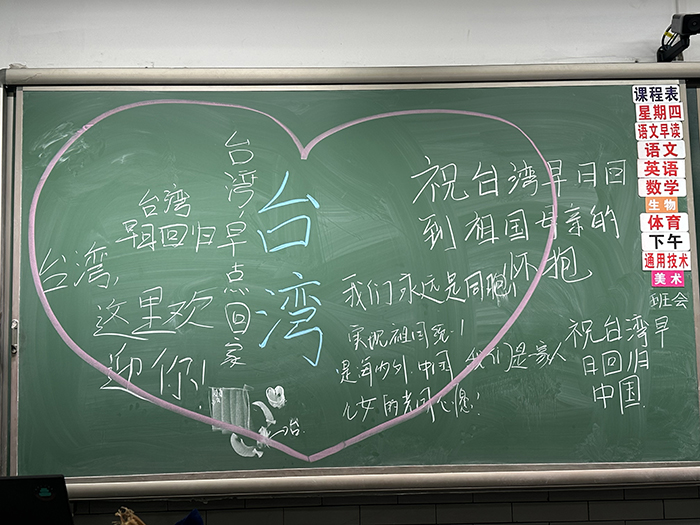 台湾
台湾,早点回家
台湾
早日回归
台湾,
这里欢
迎你!
祝台湾早日回
到祖国母亲的
怀抱
我们永远是同胞
实现祖国统一
是每个中国
儿女的共同心愿!
我们是家人
祝台湾早
日回归
中国
课程表
星期四
语文早读
语文
英语
数学
生物
体育
下午
通用技术
美术
班会